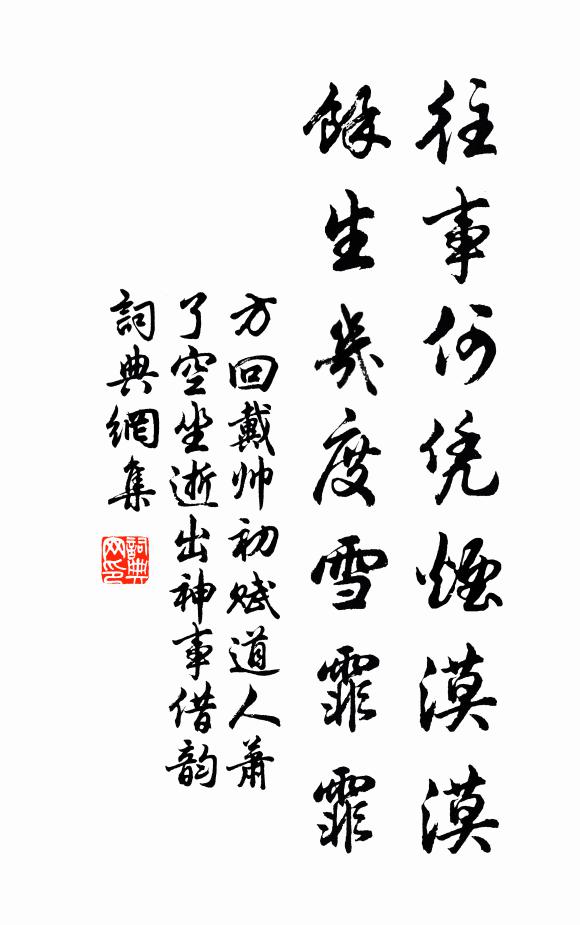 往事何凭煙漠漠
餘生幾度雪霏霏
方回戴帅初赋道人萧
了空坐逝出神事借韵
詞典網集
詞典
网印